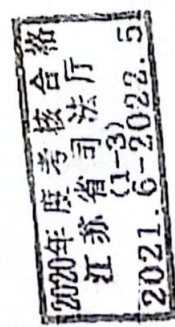 2020年度考核合格
江苏省司法厅
(1-3)
2021.6-2022.5